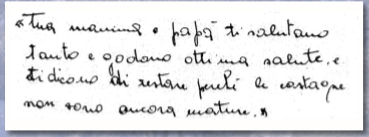 "Tua mamma e papà ti salutano
tanto e godono ottima salute, e
ti dicono di restare perché le castagne
non sono ancora mature."